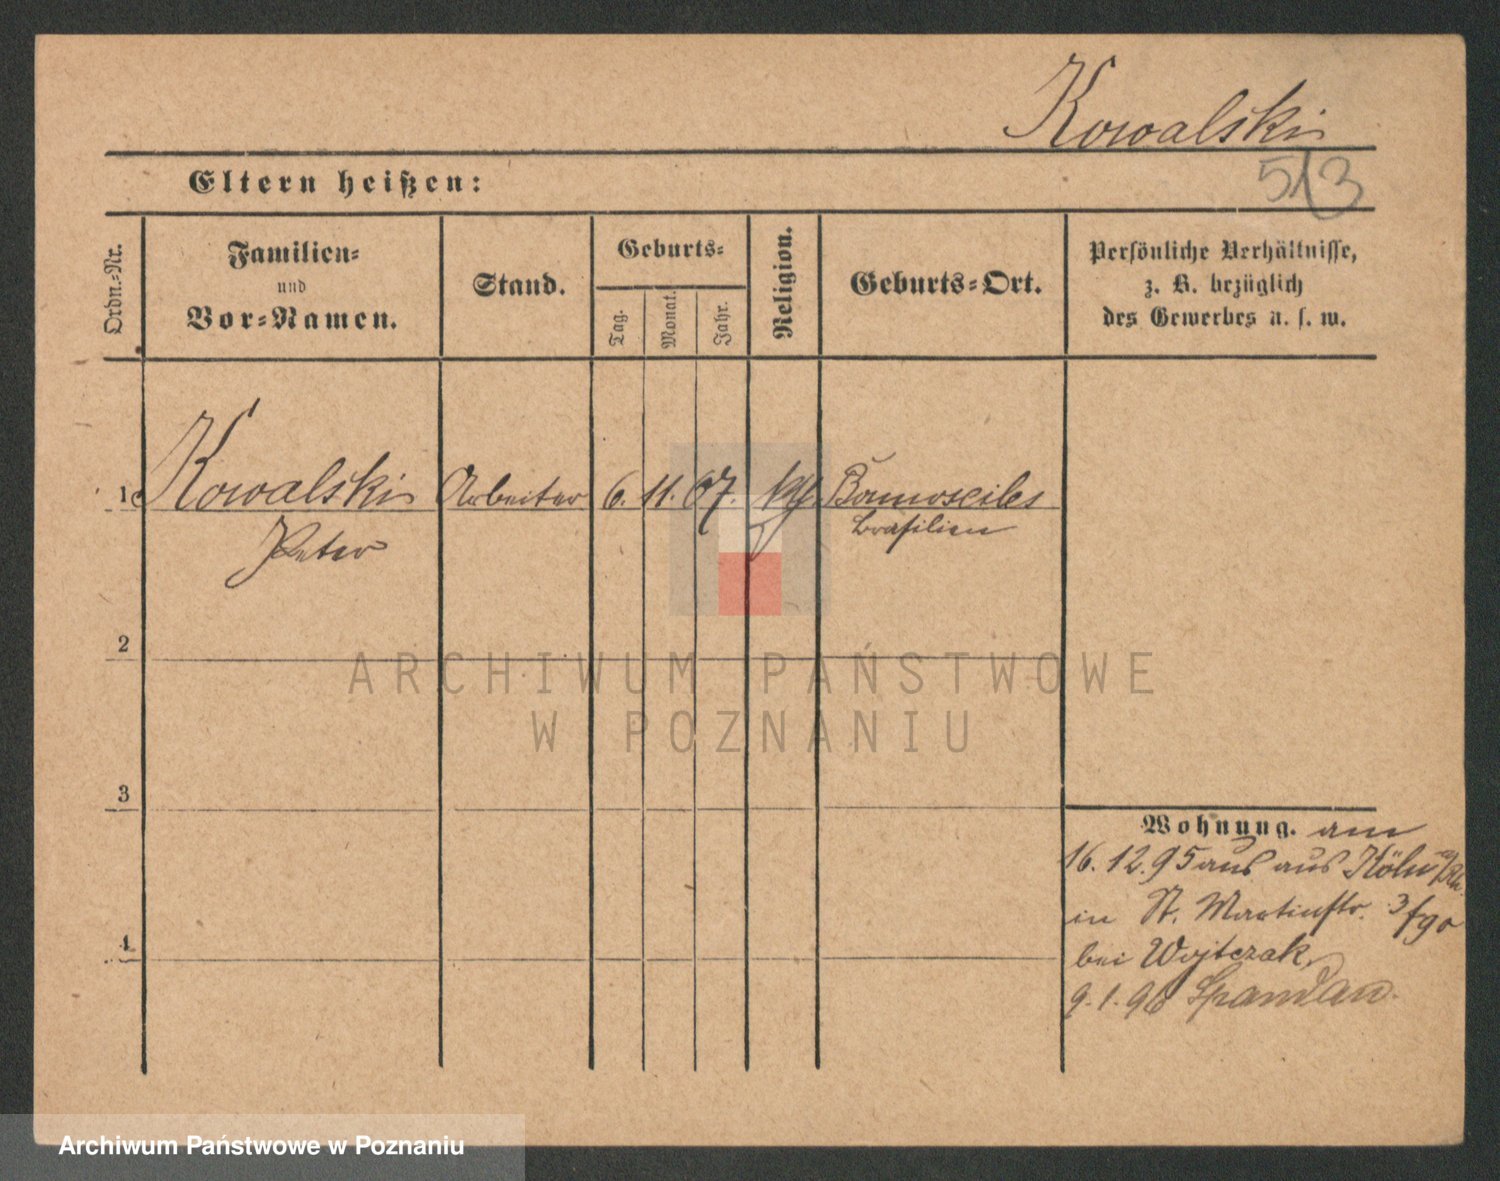 Kowalski
513
Eltern heißen:
Ordn.-Nr.
Familien- und Vor-Namen.
Stand.
Geburts-
Tag.
Monat.
Jahr.
Religion.
Geburts-Ort.
Persönliche Verhältnisse,
z. B. bezüglich
des Gewerbes u. s. w.
1 Kowalski Arbeiter 6. 11. 67.
Peter Brasilien
2
3
4
Wohnung. am
16. 12. 95 aus aus Köln a/Rh.
in St. Martinstr. 3
bei Wojtczak
9. 1. 96 Spandau.
ARCHIWUM PAŃSTWOWE
W POZNANIU
Archiwum Państwowe w Poznaniu